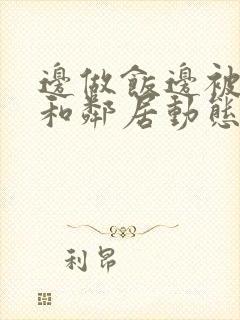 邊做飯邊被
和鄰居動態
利昂